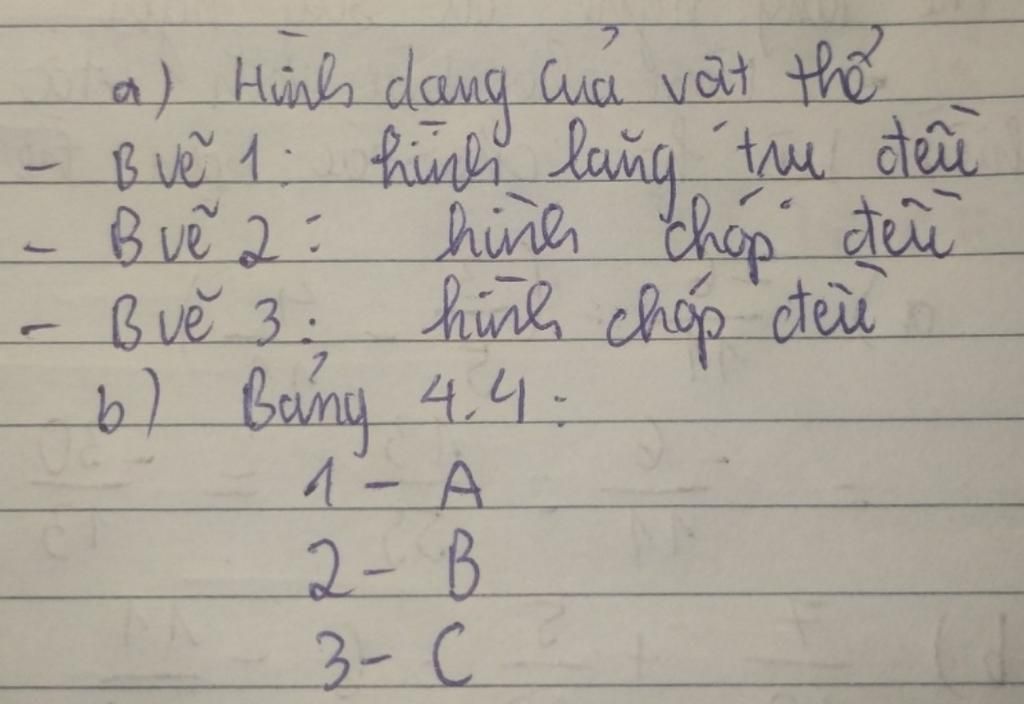 a) Hình dạng của vật thể
- B vẽ 1: hình lăng trụ đều
- B vẽ 2: hình chóp đều
- B vẽ 3: hình chóp đều
b) Bảng 4.4:
1 - A
2 - B
3 - C